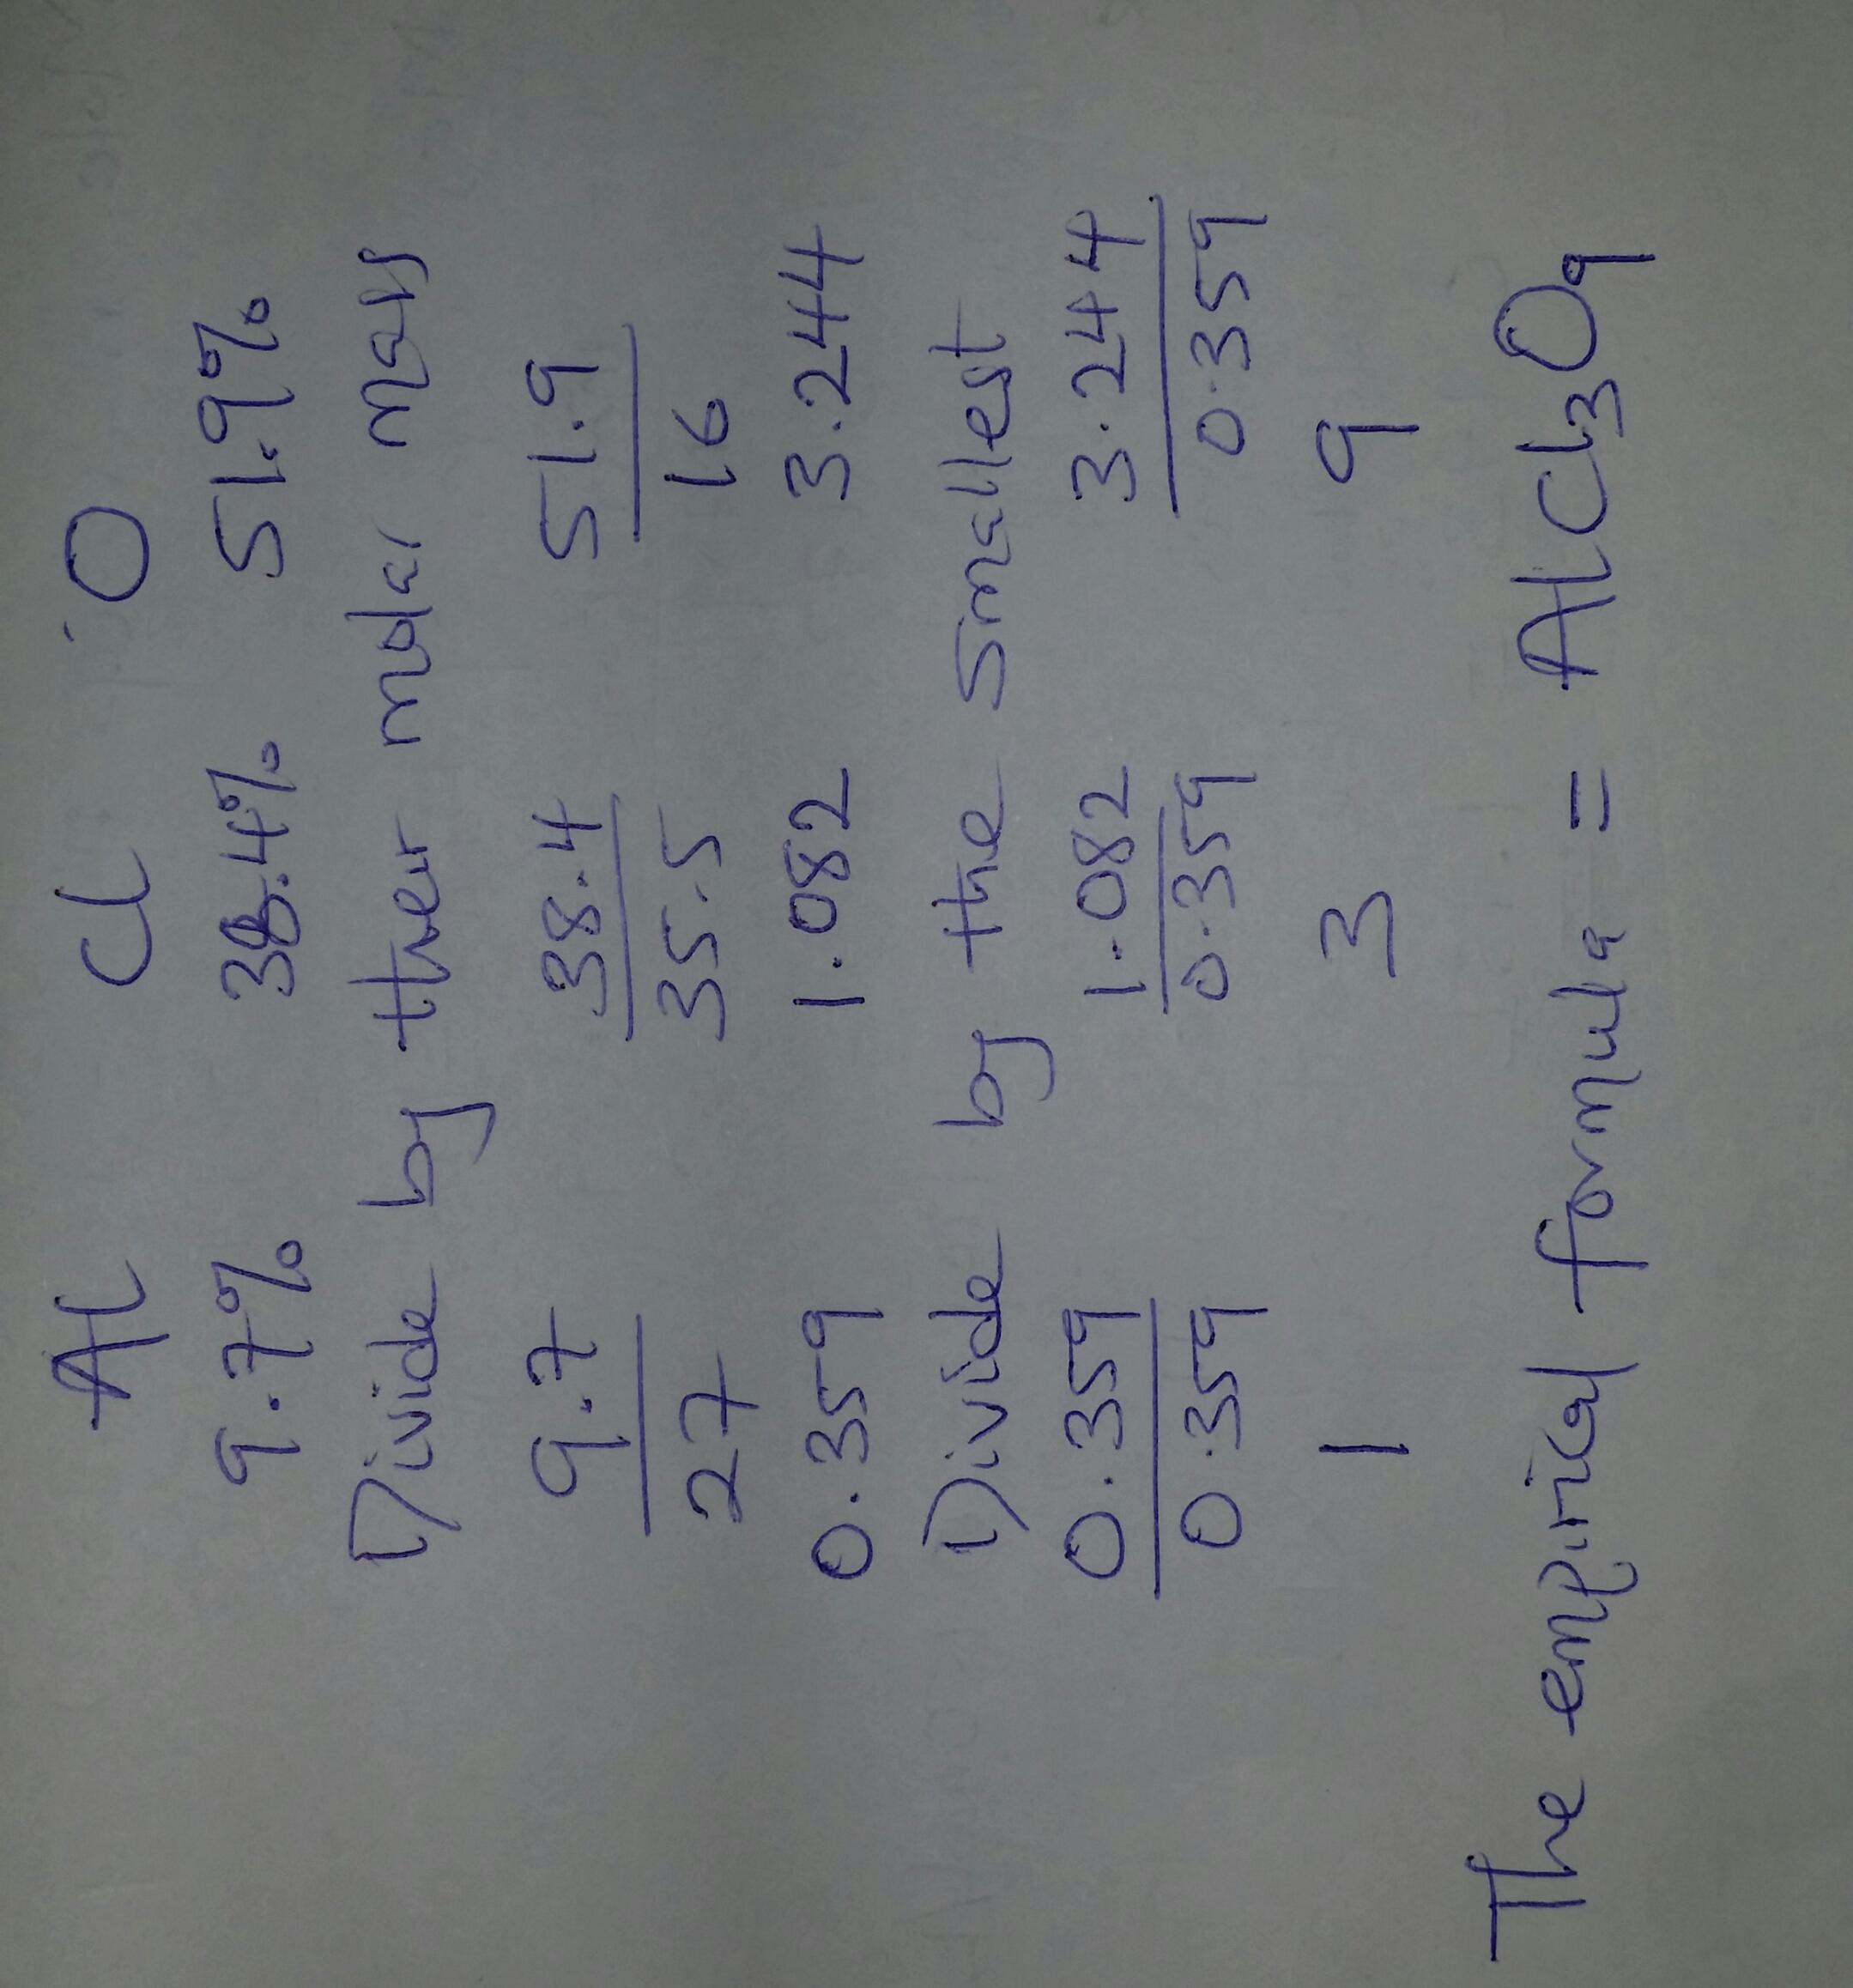 Al Cl O
9.7% 38.4% 51.9%
Divide by ther molar mass
9.7 38.4 51.9
27 35.5 16
0.359 1.082 3.244
Divide by the smallest
0.359 1.082 3.244
0.359 0.359 0.359
1 3 9
The empirical formula = AlCl3O9